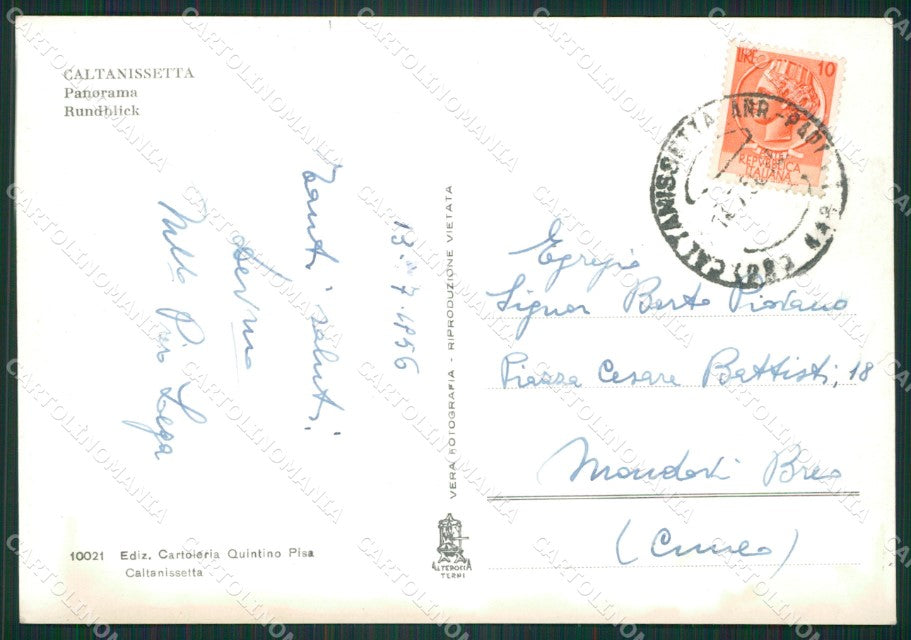 CALTANISSETTA
Panorama
Rundblick
13.7.1956
Tanti saluti
LIRE 10
REPVBBLICA
ITALIANA
CALTANISSETTA ARR.-PART
VERA FOTOGRAFIA - RIPRODUZIONE VIETATA
Egregio
Signor Berto Piovano
Piazza Cesare Battisti, 18
Mondovì Breo
(Cuneo)
10021 Ediz. Cartoleria Quintino Pisa
Caltanissetta
ALTEROCCA
TERNI
CARTOLINOMANIA